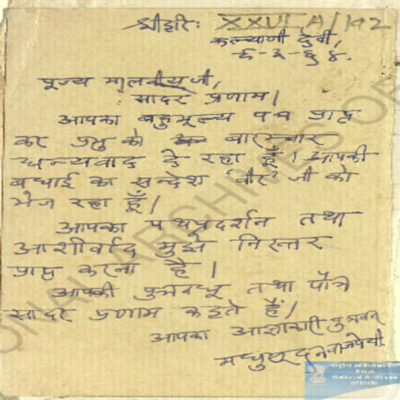 श्रीहरिः XXVI A/192
कल्याणी देवी,
६-३-६४.
पूज्य मालवीय जी,
सादर प्रणाम।
आपका बहुमूल्य पत्र प्राप्त
कर प्रभु को बारम्बार
धन्यवाद दे रहा हूँ। आपकी
बधाई का सन्देश जी को
भेज रहा हूँ।
आपका पथप्रदर्शन तथा
आशीर्वाद मुझे निरन्तर
प्राप्त करना है।
आपकी पुत्रवधू तथा पौत्र
सादर प्रणाम कहते हैं।
आपका आज्ञाकारी पुत्रवत्
मधुसूदन वाजपेयी